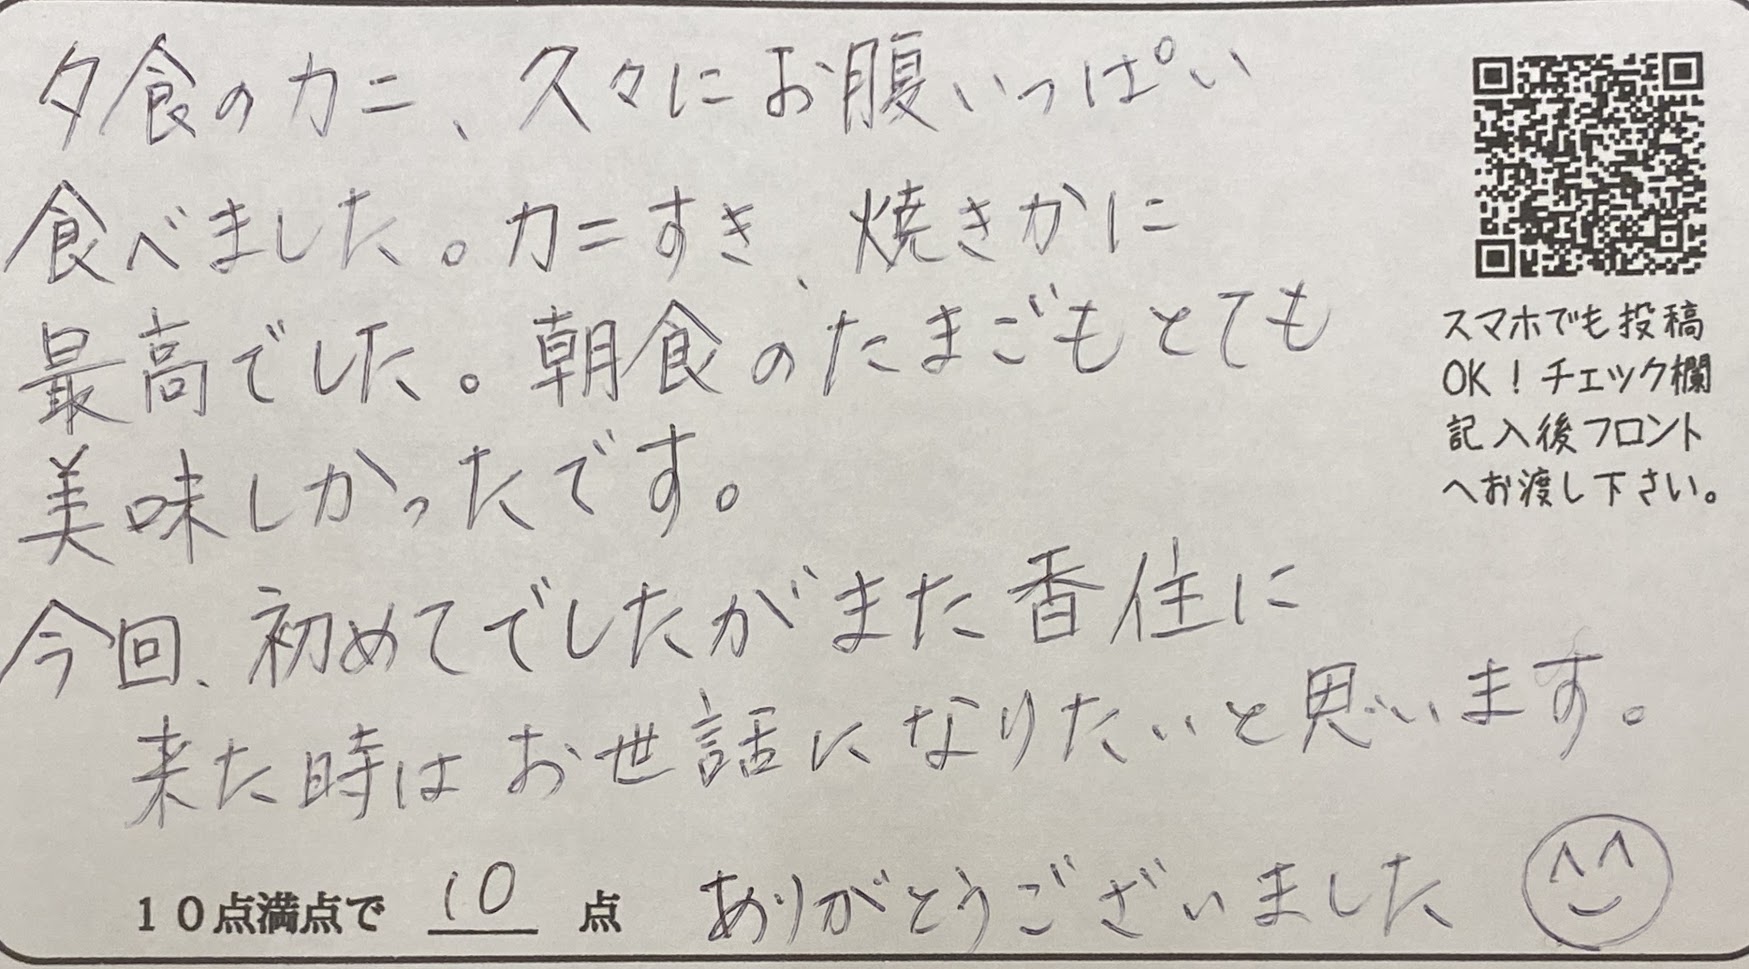 夕食のカニ、久々にお腹いっぱい
食べました。カニすき、焼きかに
最高でした。朝食のたまごもとても
美味しかったです。
今回、初めてでしたがまた香住に
来た時はお世話になりたいと思います。
10点満点で 10 点 ありがとうございました
スマホでも投稿
OK！チェック欄
記入後フロント
へお渡し下さい。